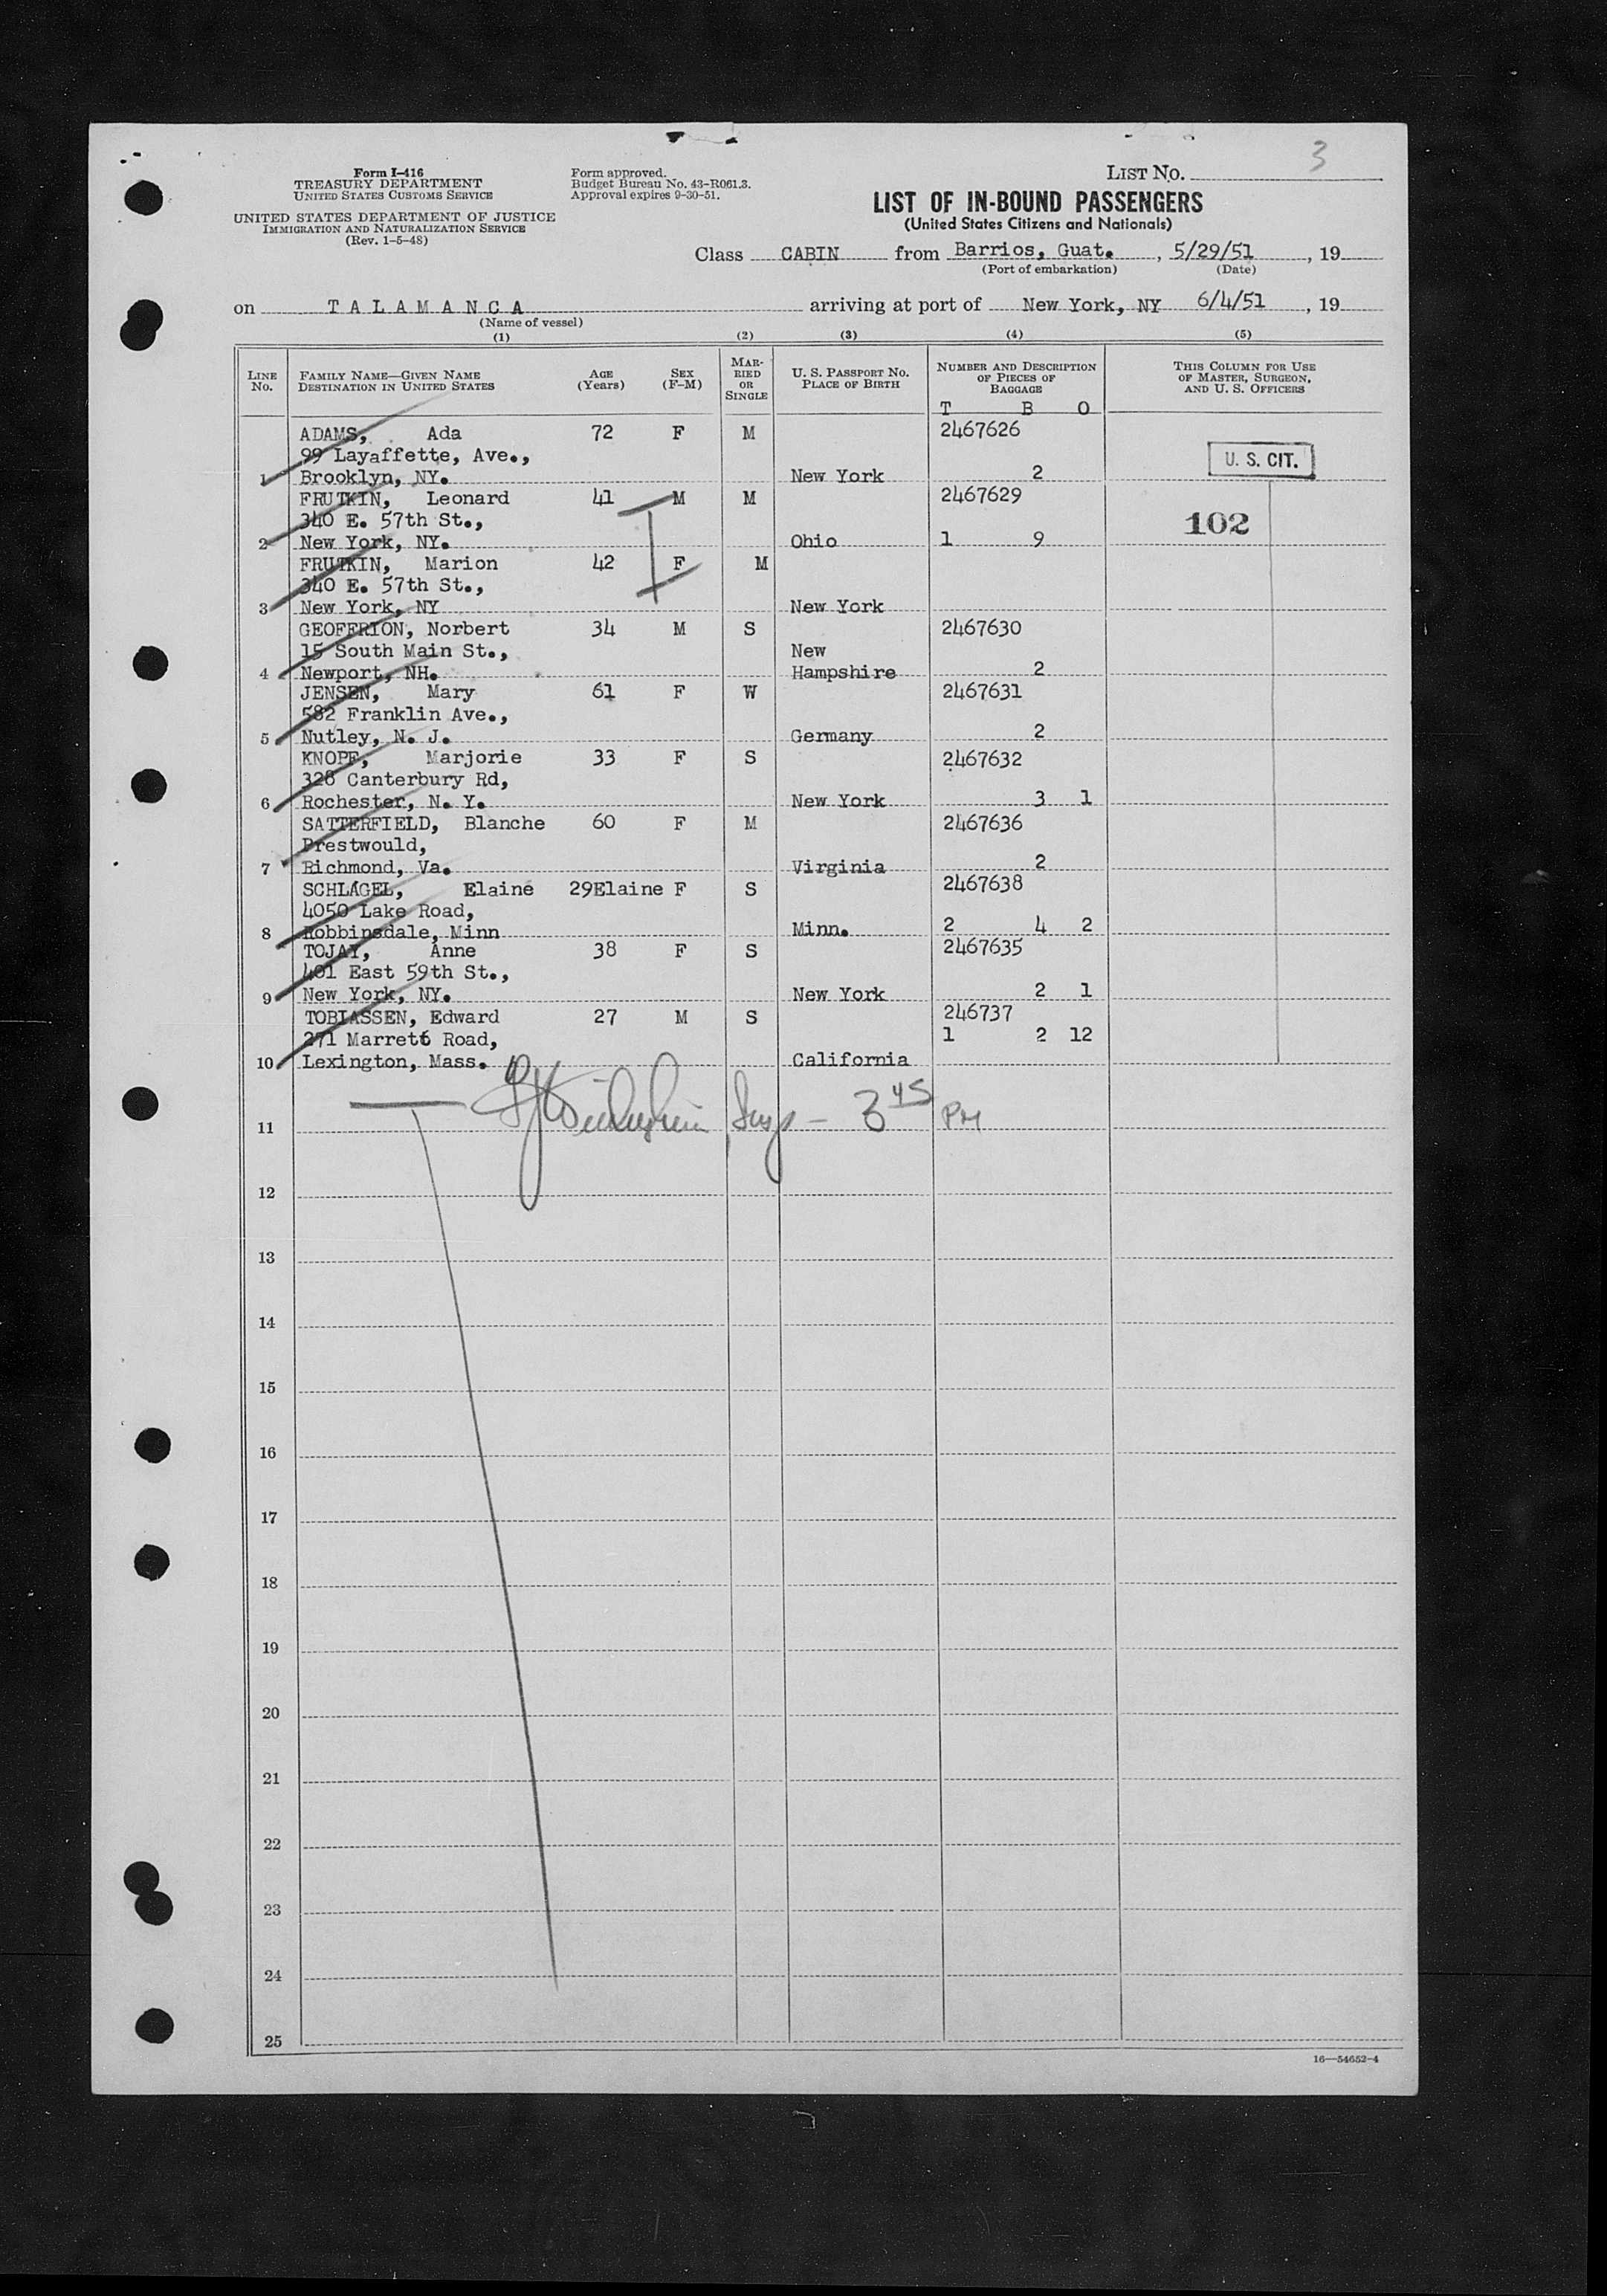 3
Form I-416
TREASURY DEPARTMENT
UNITED STATES CUSTOMS SERVICE
UNITED STATES DEPARTMENT OF JUSTICE
IMMIGRATION AND NATURALIZATION SERVICE
(Rev. 1-5-48)
Form approved.
Budget Bureau No. 43-R061.3.
Approval expires 9-30-51.
LIST NO.
LIST OF IN-BOUND PASSENGERS
(United States Citizens and Nationals)
Class CABIN from Barrios, Guat. , 5/29/51 , 19
(Port of embarkation) (Date)
on TALAMANCA arriving at port of New York, NY 6/4/51 , 19
(Name of vessel)
(1) (2) (3) (4) (5)
LINE NO. FAMILY NAME—GIVEN NAME DESTINATION IN UNITED STATES AGE (Years) SEX (F-M) MARRIED OR SINGLE U. S. PASSPORT NO. PLACE OF BIRTH NUMBER AND DESCRIPTION OF PIECES OF BAGGAGE THIS COLUMN FOR USE OF MASTER, SURGEON, AND U. S. OFFICERS
T B O
ADAMS, Ada 72 F M 2467626
99 Layaffette, Ave.,
U. S. CIT.
1 Brooklyn, NY. New York 2
FRUTKIN, Leonard 41 M M 2467629
340 E. 57th St.,
102
2 New York, NY. Ohio 1 9
FRUTKIN, Marion 42 F M
340 E. 57th St.,
3 New York, NY New York
GEOFERION, Norbert 34 M S 2467630
15 South Main St., New
4 Newport, NH. Hampshire 2
JENSEN, Mary 61 F W 2467631
582 Franklin Ave.,
5 Nutley, N. J. Germany 2
KNOPF, Marjorie 33 F S 2467632
328 Canterbury Rd,
6 Rochester, N. Y. New York 3 1
SATTERFIELD, Blanche 60 F M 2467636
Prestwould,
7 Richmond, Va. Virginia 2
SCHLAGEL, Elaine 29Elaine F S 2467638
4050 Lake Road,
8 Robbinsdale, Minn Minn. 2 4 2
TOJAY, Anne 38 F S 2467635
401 East 59th St.,
9 New York, NY. New York 2 1
TOBIASSEN, Edward 27 M S 246737
271 Marrett Road, 1 2 12
10 Lexington, Mass. California
Insp – 3 45 PM
11
12
13
14
15
16
17
18
19
20
21
22
23
24
25
16—54652-4